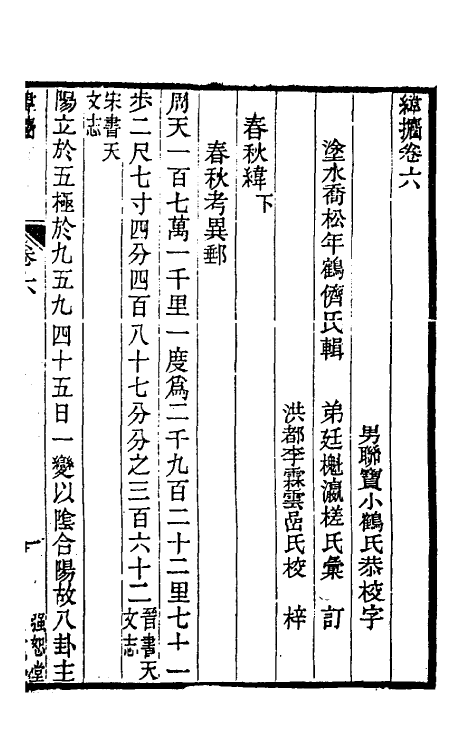 緯攟卷六
男聯寶小鶴氏恭校字
塗水喬松年鶴儕氏輯　弟廷櫆瀛槎氏彙　訂
洪都李霖雲嵒氏校　梓
春秋緯下
春秋考異郵
周天一百七萬一千里一度爲二千九百二十二里七十一
步二尺七寸四分四百八十七分分之三百六十二晉書天文志
宋書天文志
陽立於五極於九五九四十五日一變以陰合陽故八卦主
卷六
一
强恕堂